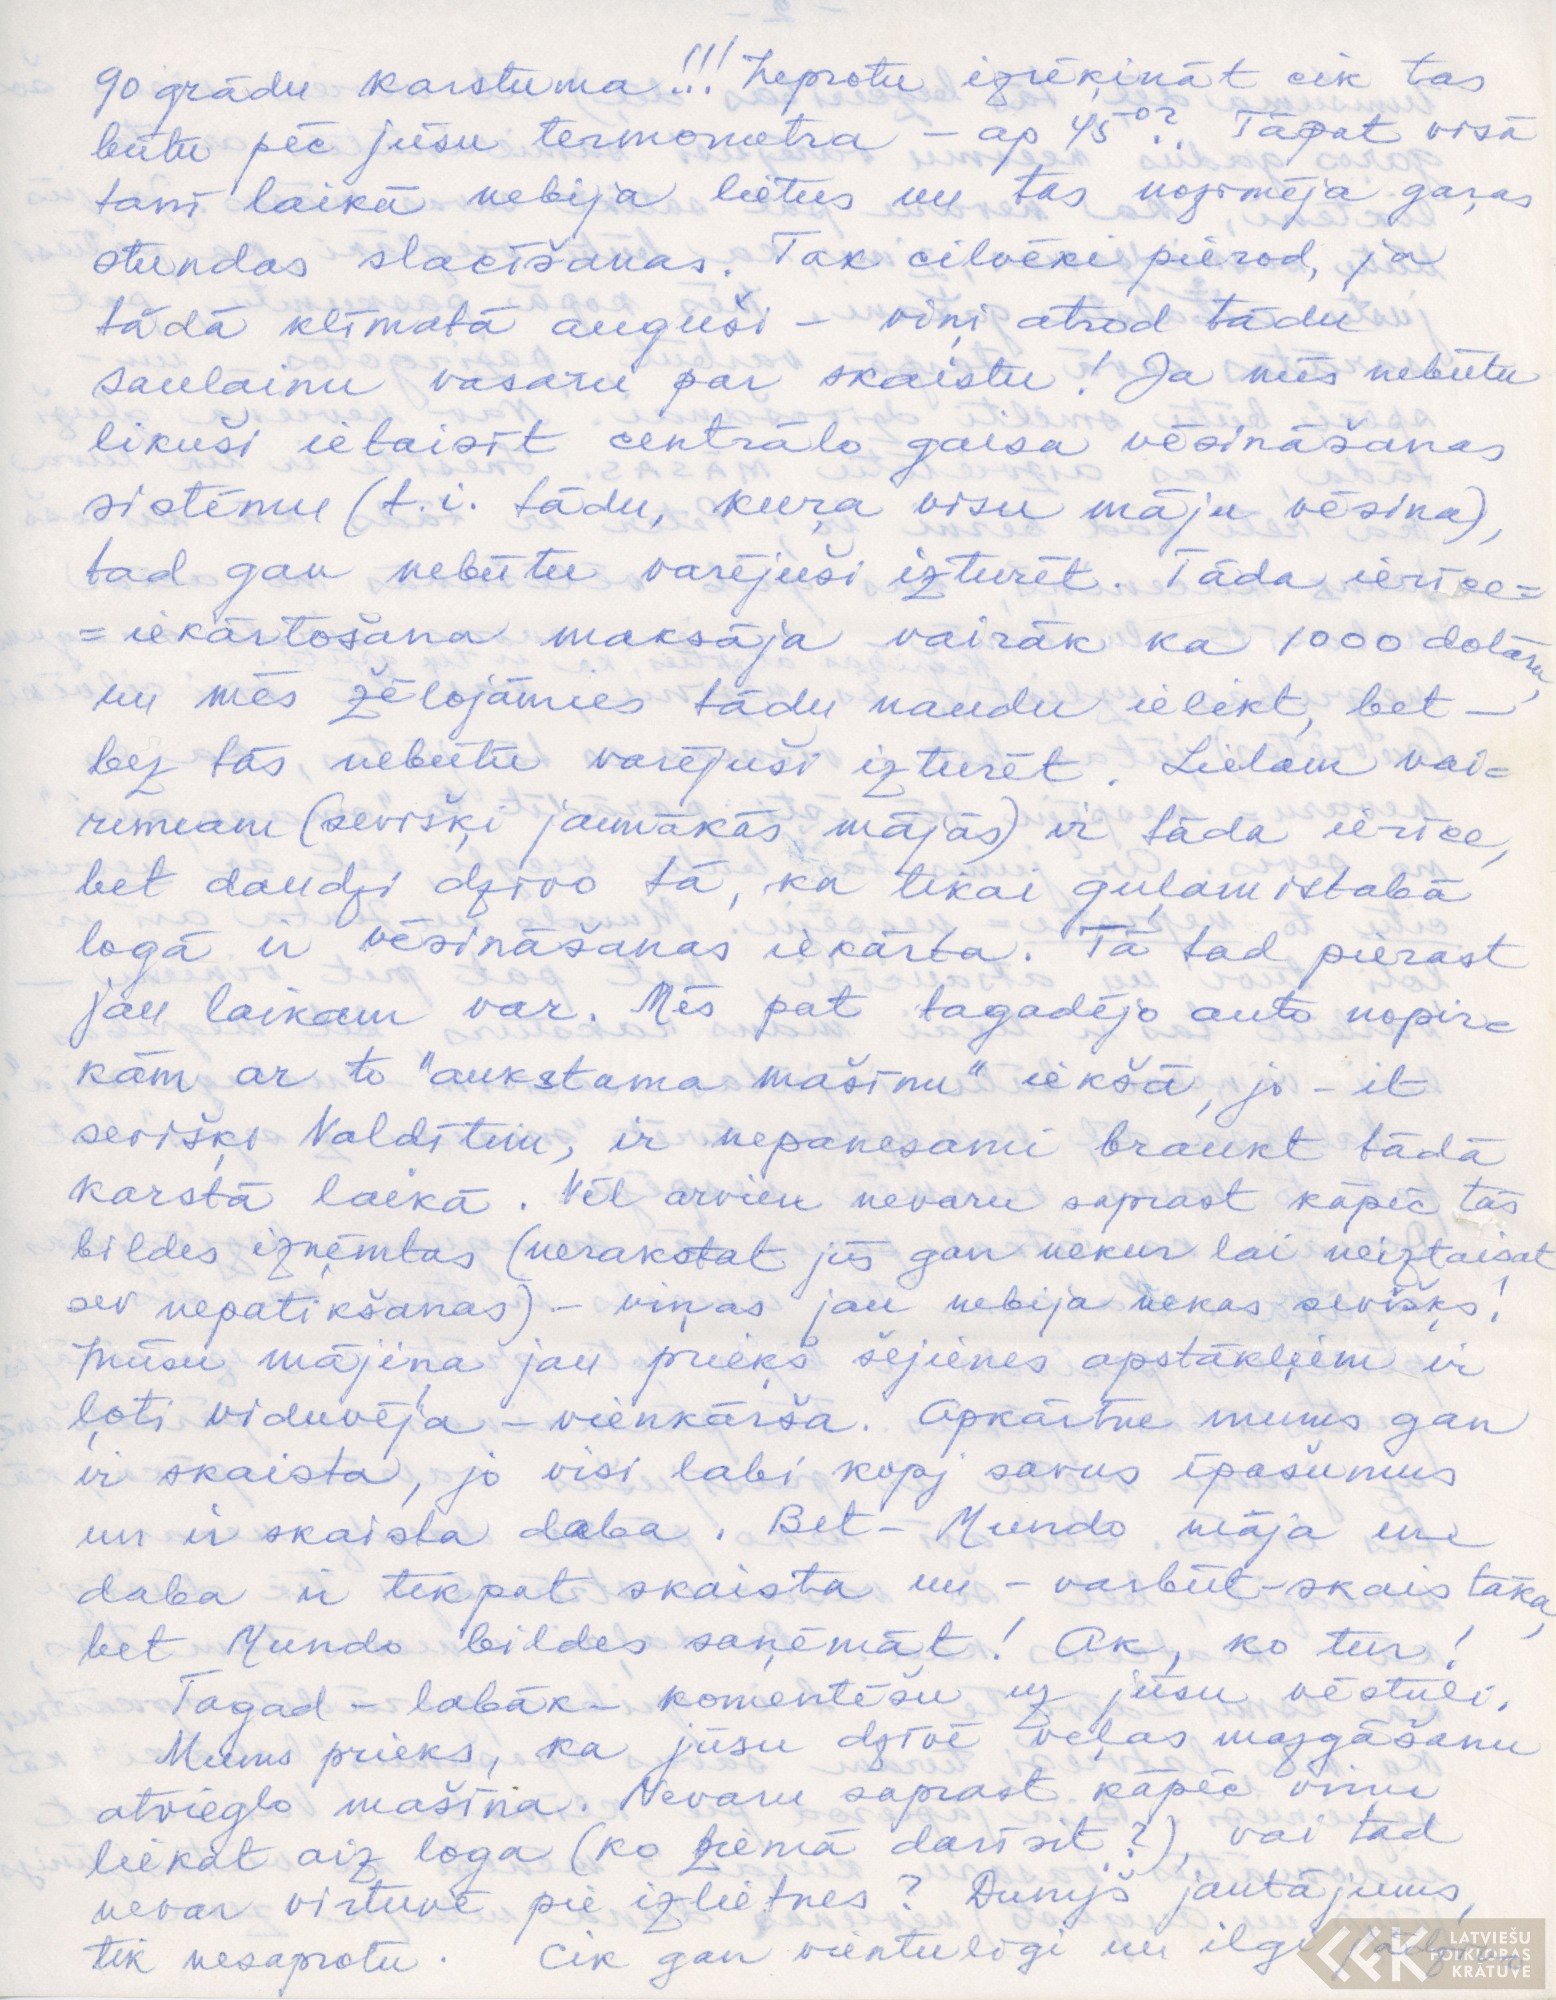 90 grādu karstuma!!! Neprotu izrēķināt cik tas
būtu pēc jūsu termometra – ap 45°?. Tāpat visā
tanī laikā nebija lietus un tas nozīmēja gaŗas
stundas slacīšanas. Tak cilvēki pierod, ja
tādā klīmatā auguši – viņi atrod tādu
saulainu vasaru par skaistu! Ja mēs nebūtu
likuši ietaisīt centrālo gaisa vēsināšanas
sistēmu (t.i. tādu, kuŗa visu māju vēsina),
tad gan nebūtu varējuši izturēt. Tāda ierīce=
=iekārtošana maksāja vairāk ka 1000 dolāru,
un mēs žēlojāmies tādu naudu ielikt, bet –
bez tās nebūtu varējuši izturēt. Lielam vai=
rumam (sevišķi jaunākās mājās) ir tāda ierīce,
bet daudzi dzīvo tā, ka tikai guļamistabā
logā ir vēsināšanas iekārta. Tā tad pierast
jau laikam var. Mēs pat tagadējo auto nopir=
kām ar to "aukstuma mašīnu" iekšā, jo – it
sevišķi Valdītim, ir nepanesami braukt tādā
karstā laikā. Vēl arvien nevaru saprast kāpēc tās
bildes izņemtas (nerakstat jūs gan nekur lai neiztaisat
sev nepatikšanas) – viņas jau nebija nekas sevišķs!
Mūsu mājiņa jau priekš šejienes apstākļiem ir
ļoti viduvēja – vienkārša. Apkārtne mums gan
ir skaista, jo visi labi kopj savus īpašumus
un ir skaista daba. Bet – Mundo māja un
daba ir tikpat skaista un – varbūt – skaistāka,
bet Mundo bildes saņēmāt! Ak, ko tur!
Tagad – labāk – komentēšu uz jūsu vēstuli.
Mums prieks, ka jūsu dzīvē veļas mazgāšanu
atvieglo mašīna. Nevaru saprast kāpēc viņu
liekat aiz loga (ko ziemā darīsit?), vai tad
nevar virtuvē pie izlietnes? Dumjš jautājums,
tik nesaprotu. Cik gan vientulīgi un ilgi
LATVIEŠU
FOLKLORAS
KRĀTUVE